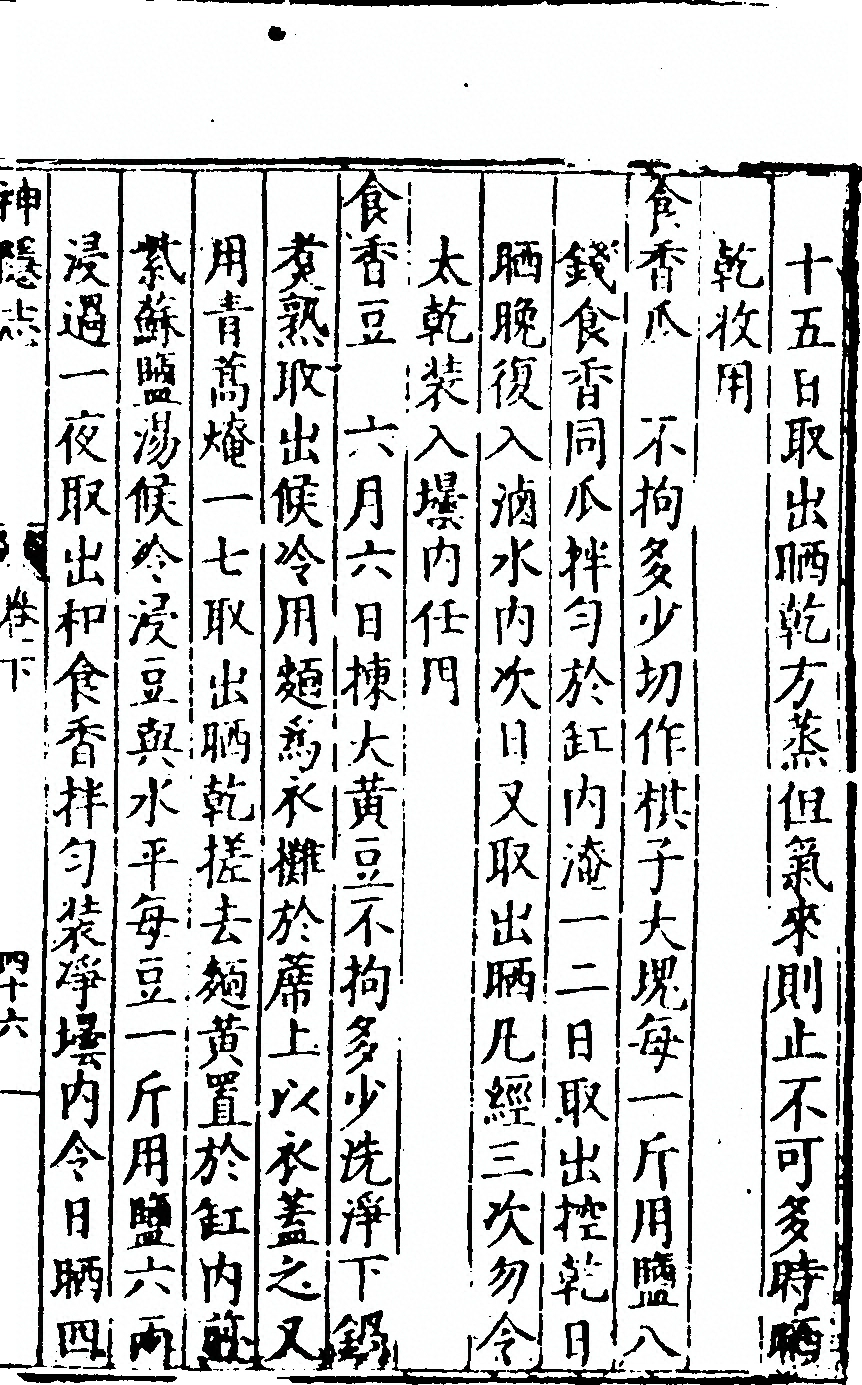 十五日取出晒乾方蒸但氣來則止不可多時晒
乾收用
食香瓜　不拘多少切作棋子大塊每一斤用鹽八
錢食香同瓜拌勻於缸內淹一二日取出控乾日
晒晚復入滷水內次日又取出晒凡經三次勿令
太乾裝入壜內任用
食香豆　六月六日揀大黃豆不拘多少洗淨下鍋
煮熟取出候冷用麵爲衣攤於蓆上以衣蓋之又
用青蒿㷈一七取出晒乾搓去麵黃置於缸內煎
紫蘇鹽湯候冷浸豆與水平每豆一斤用鹽六兩
浸過一夜取出和食香拌勻裝凈壜內令日晒四
神隱志　卷下　四十六